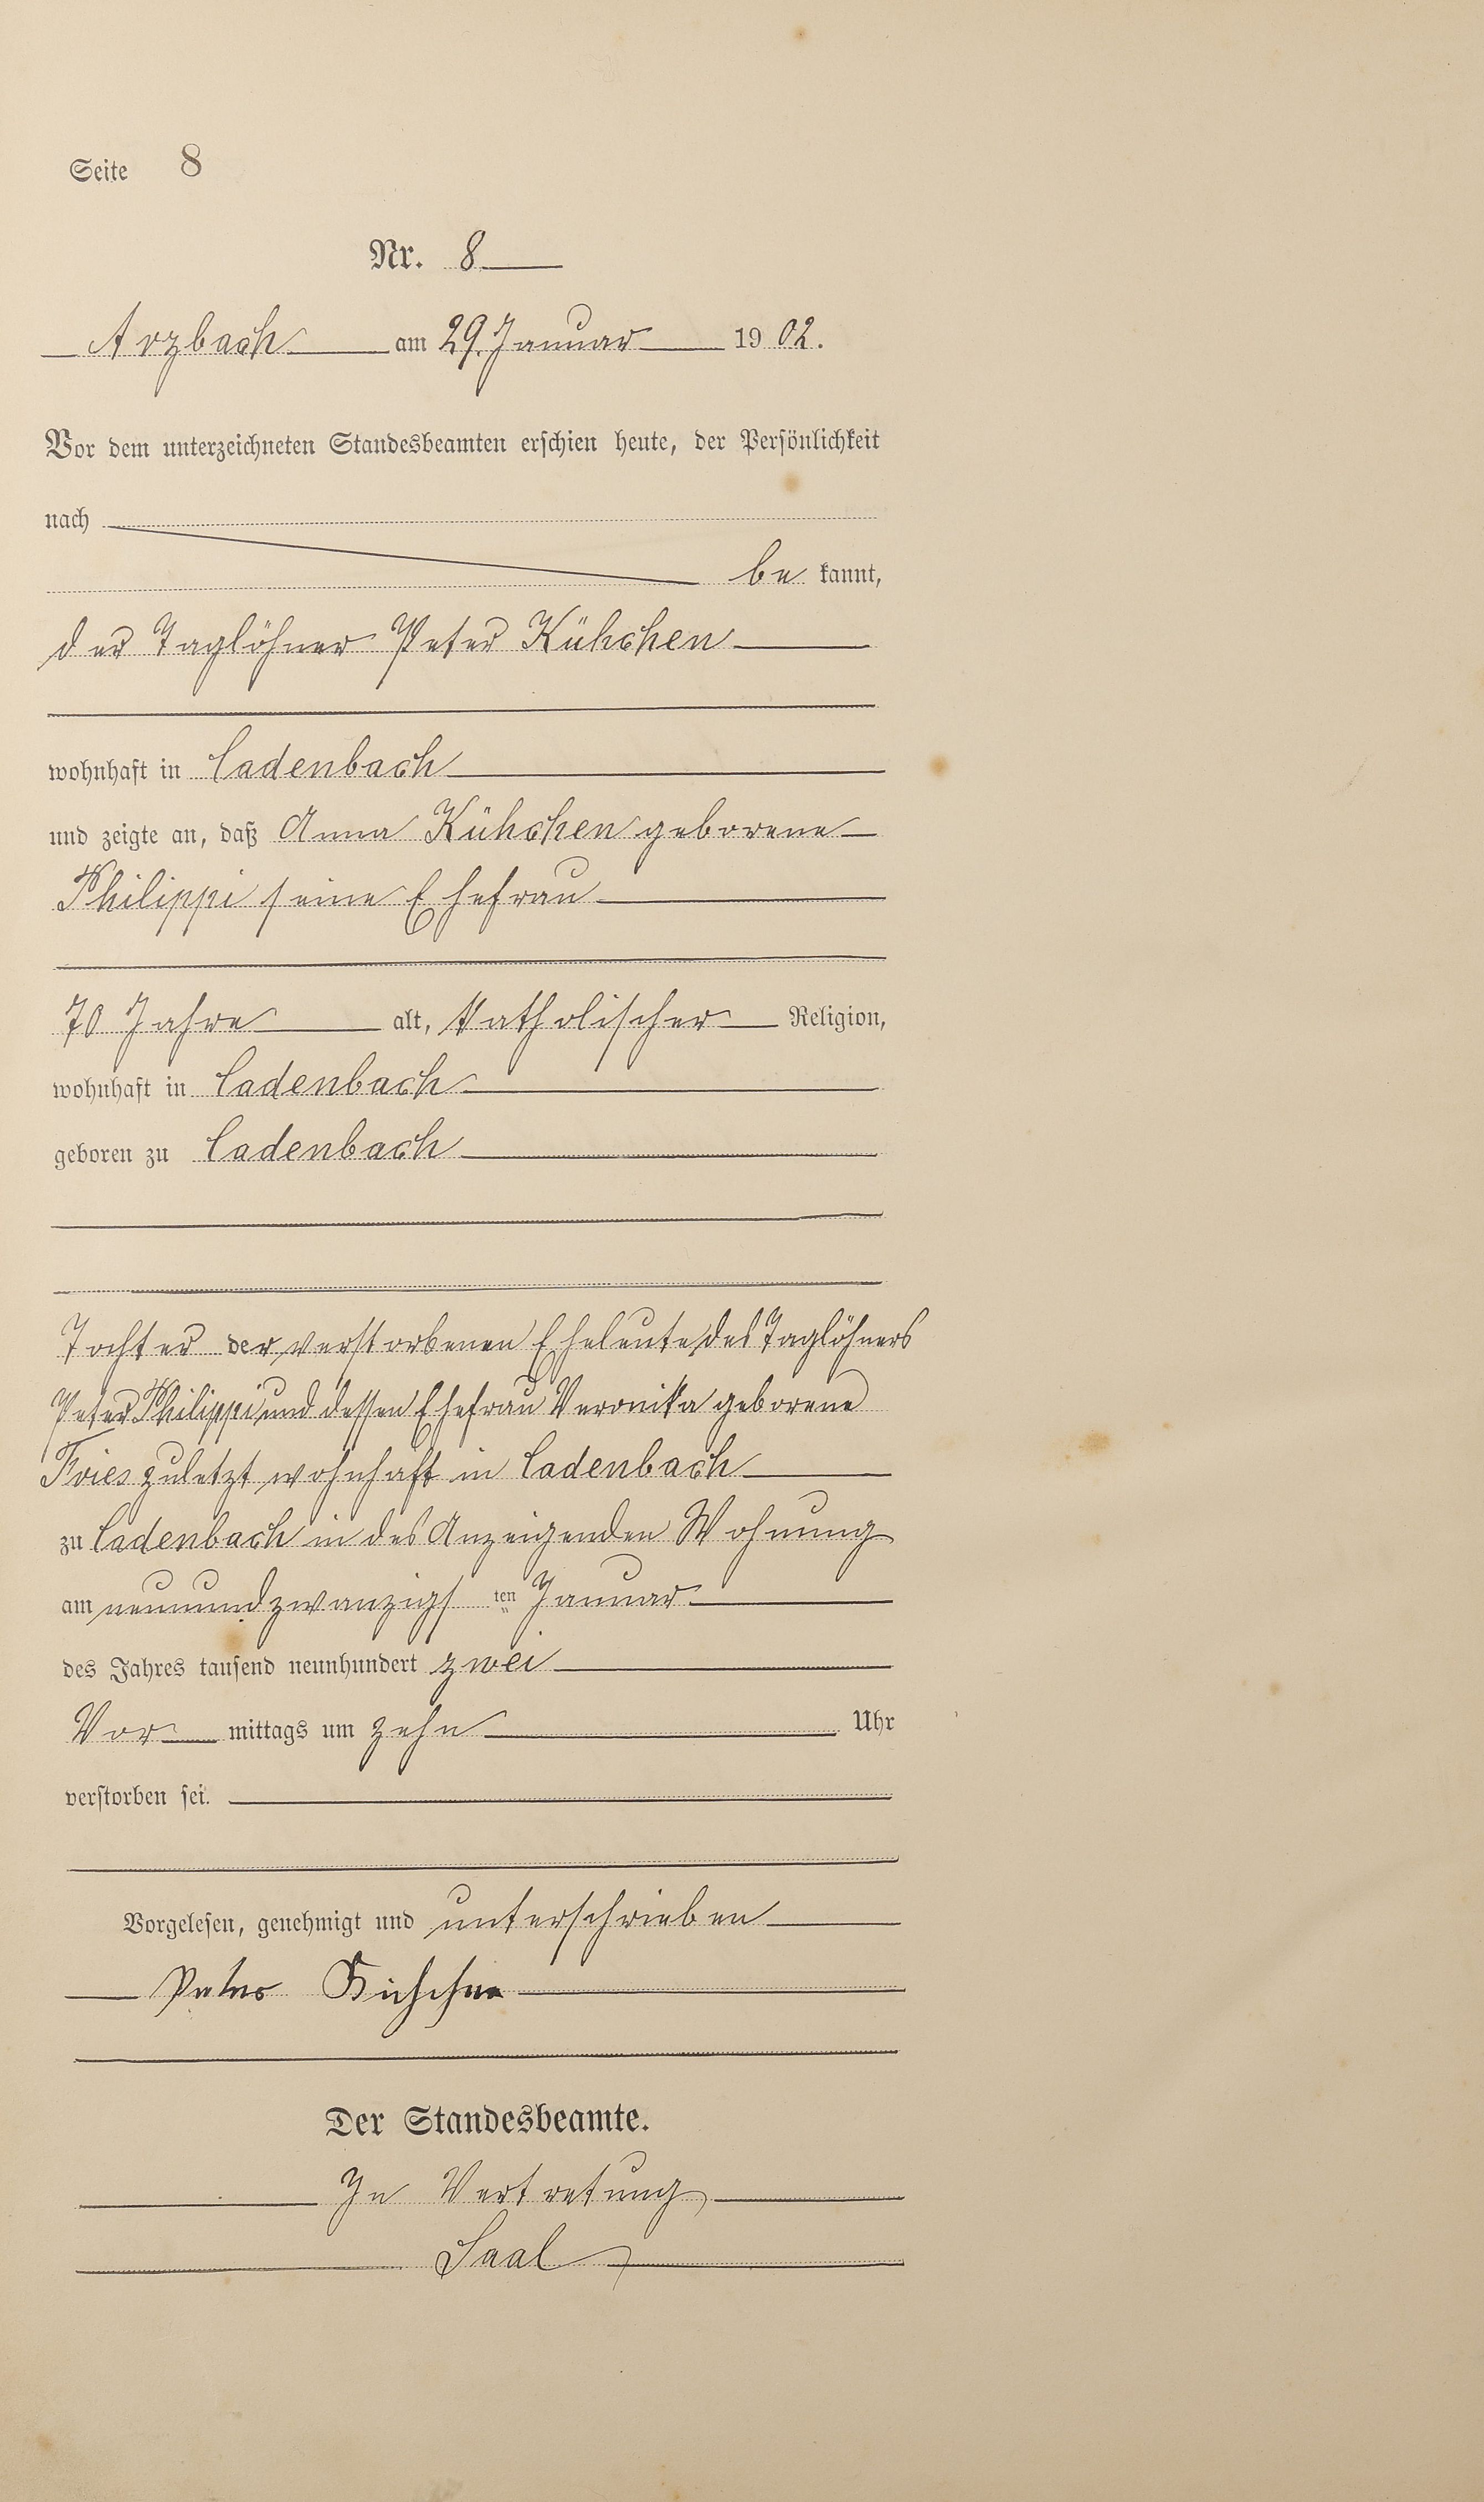 Seite 8
Nr. 8
Arzbach am 29. Januar 1902.
Vor dem unterzeichneten Standesbeamten erschien heute, der Persönlichkeit
nach
be kannt,
der Taglöhner Peter Kühchen
wohnhaft in Cadenbach
und zeigte an, daß Anna Kühchen geborene
Philippi seine Ehefrau
70 Jahre alt, katholischer Religion,
wohnhaft in Cadenbach
geboren zu Cadenbach
Tochter der verstorbenen Eheleute des Taglöhners
Peter Philippi und dessen Ehefrau Veronika geborene
Fries zuletzt wohnhaft in Cadenbach
zu Cadenbach in des Anzeigenden Wohnung
am neunundzwanzigs ten Januar
des Jahres tausend neunhundert zwei
Vor mittags um zehn Uhr
verstorben sei.
Vorgelesen, genehmigt und unterschrieben
Peter Kühchen
Der Standesbeamte.
In Vertretung
Saal